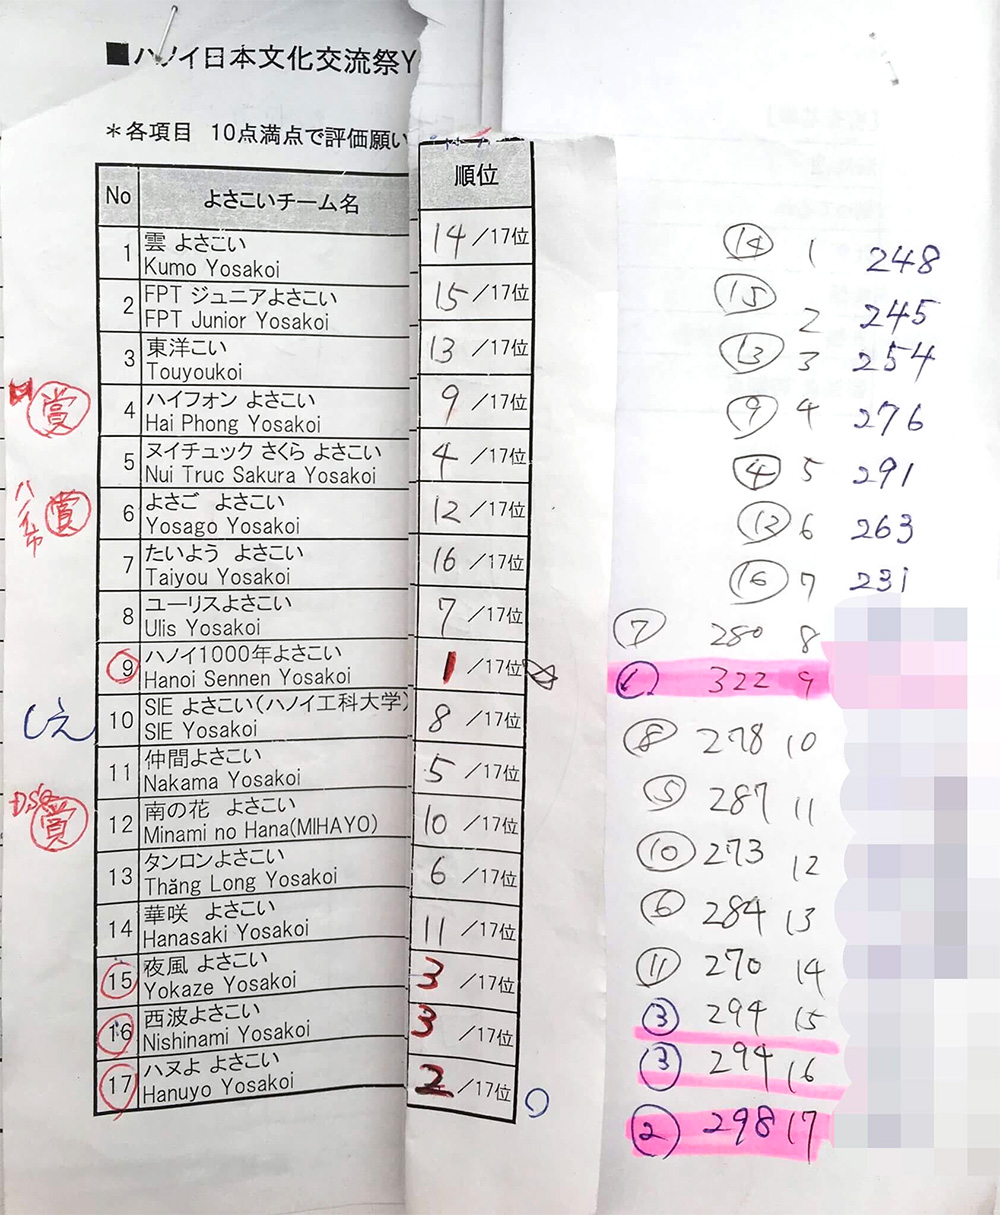 ■ハノイ日本文化交流祭Y
＊各項目 10点満点で評価願い
No よさこいチーム名 順位
1 雲 よさこい 14/17位 ⑭ 1 248
Kumo Yosakoi
2 FPT ジュニアよさこい 15/17位 ⑮ 2 245
FPT Junior Yosakoi
3 東洋こい 13/17位 ⑬ 3 254
Touyoukoi
賞 4 ハイフォン よさこい 9/17位 ⑨ 4 276
Hai Phong Yosakoi
5 ヌイチュック さくら よさこい 4/17位 ④ 5 291
Nui Truc Sakura Yosakoi
ハノイ市 賞 6 よさご よさこい 12/17位 ⑫ 6 263
Yosago Yosakoi
7 たいよう よさこい 16/17位 ⑯ 7 231
Taiyou Yosakoi
8 ユーリスよさこい 7/17位 ⑦ 280 8
Ulis Yosakoi
⑨ ハノイ1000年よさこい 1/17位 ① 322 9
Hanoi Sennen Yosakoi
しえ 10 SIE よさこい(ハノイ工科大学) 8/17位 ⑧ 278 10
SIE Yosakoi
11 仲間よさこい 5/17位 ⑤ 287 11
Nakama Yosakoi
賞 12 南の花 よさこい 10/17位 ⑩ 273 12
Minami no Hana(MIHAYO)
13 タンロンよさこい 6/17位 ⑥ 284 13
Thăng Long Yosakoi
14 華咲 よさこい 11/17位 ⑪ 270 14
Hanasaki Yosakoi
⑮ 夜風 よさこい 3/17位 ③ 294 15
Yokaze Yosakoi
⑯ 西波よさこい 3/17位 ③ 294 16
Nishinami Yosakoi
⑰ ハヌよ よさこい 2/17位 ② 298 17
Hanuyo Yosakoi